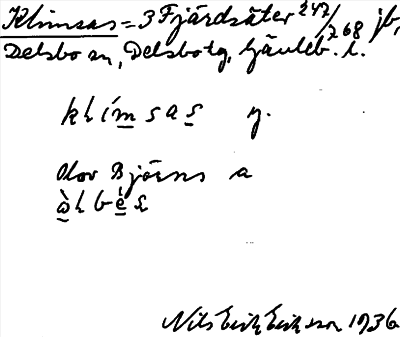 Klimsas = 3 Fjärdsäter 2 47/268 jb,
Delsbo sn, Delsbo tg, Gävleb. l.
klimsas y.
Olov Björns a
Nils Erik Eriksson 1936